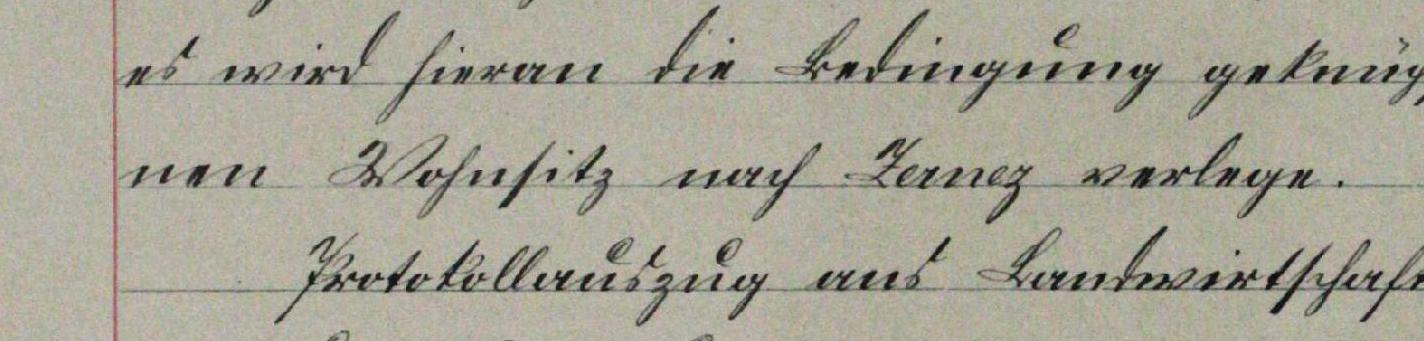 es wird hieran die Bedingung geknüp
nen Wohnsitz nach Zernez verlege.
Protokollauszug ans Landwirtschaf